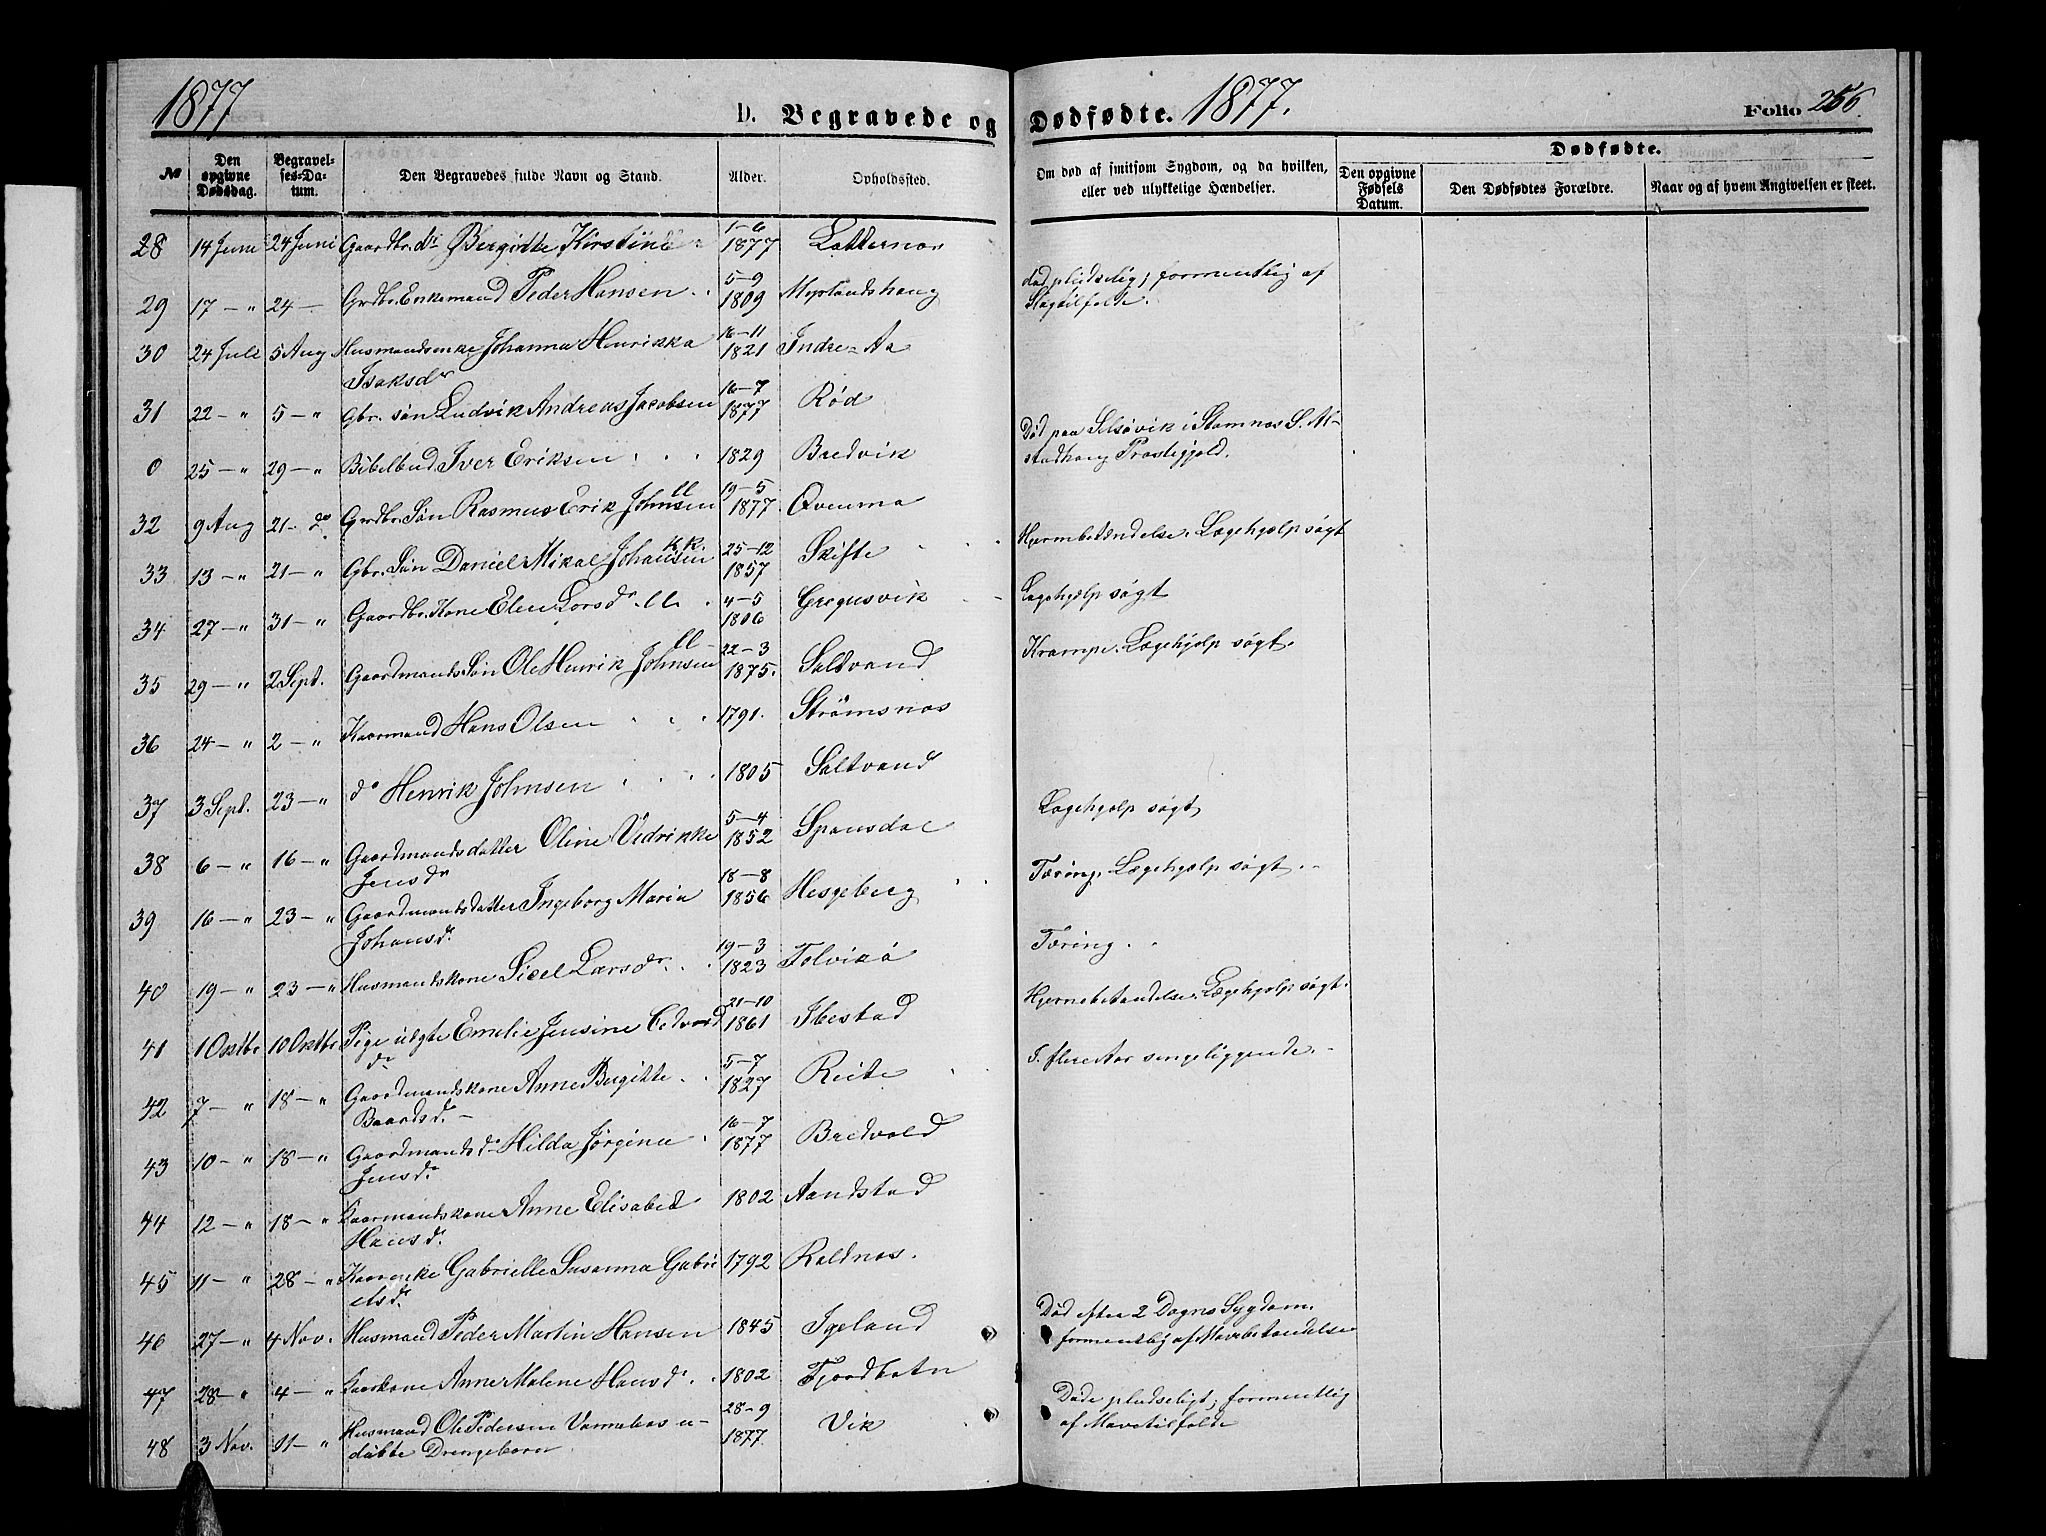 1877
D. Begravede og Dødfødte. 1877.
Folio 256.
№
Den opgivne Dødsdag.
Begravelses-Datum.
Den Begravedes fulde Navn og Stand.
Alder.
Opholdssted.
Om død af smitsom Sygdom, og da hvilken, eller ved ulykkelige Hændelser.
Dødfødte.
Den opgivne Fødsels Datum.
Den Dødfødtes Forældre.
Naar og af hvem Angivelsen er skeet.
28 14 Juni 24 Juni Gaardbr. dr Bergitte Kirstine 1-6 1877
29 17 — " 24 — Grdbr. Enkemand Peder Hansen 5-9 1809 Myrlandshaug død pludselig, formentlig af
Slagtilfælde.
30 24 Juli 5 Aug Husmandsenke Johanna Henrikka 16-11 1821 Indre-Aa
Isaksdr
31 22 — " 5 — " Gbr. søn Ludvik Andreas Jacobsen 16-7 1877 Rød
0 25 — " 29 — " Bibelbud Iver Eriksen 1829 Bredvik Død paa Selsøvik i Stamnes S. Al-
stadhaug Prestegjeld.
32 9 Aug 21 — do Grdbr. Søn Rasmus Erik Johnsen ll 19-5 1877
33 13 — " 21 — " Gbr. Søn Daniel Mikal Johansen KK. 25-12 1857 Skifte Hjernebetændelse. Lægehjælp søgt
34 27 — " 31 — " Gaardbr. Kone Elen Larsdr. ll 4-5 1806 Gregusvik Lægehjælp søgt
35 29 — " 2 Sept. Gaardmands Søn Ole Henrik Johnsen ll 22-3 1875. Saltvand Krampe. Lægehjælp søgt.
36 24 — " 2 — " Kaarmand Hans Olsen 1791. Strømsnæs
37 3 Sept. 23 — " do Henrik Johnsen 1805 Saltvand Lægehjælp søgt
38 6 — " 16 — " Gaardmandsdatter Oline Vedrikke 5-4 1852 Spansdal Tæring. Lægehjælp søgt.
Jensdr
39 16 — " 23 — " Gaardmandsdatter Ingeborg Maria 18-8 1856 Hesgeberg Tæring.
Johansd.
40 19 — " 23 — " Husmandskone Sicel Larsdr. 19-3 1823 Tolvikø Hjernebetændelse. Lægehjælp søgt.
41 1 Oktbr 10 Oktbr Pige ugifte Emelie Jensine Edvards 21-10 1861 Ibestad I. flere Aar sengeliggende.
dr
42 7 — " 18 — " Gaardmandskone Anne Birgitte 5-7 1827 Reite
Baardsd.
43 10 — " 18 — " Gaardmands dr Hilda Jørgine 16-7 1877 Bredvold
Jensdr
44 12 — " 18 — " Kaarmandskone Anne Elisabed 1802 Aandstad
Hansd.
45 11 — " 28 — " Kaarenke Gabrielle Susanna Gabri 1792 Roldnes.
elsd.
46 27 — " 4 Nov. Husmand Peder Martin Hansen 1845 Igeland Død efter 2 Dagns Sygdom.
formentlig af Mavebetændelse
47 28 — " 4 — " Kaarkone Anne Malene Hansdr. 1802 Fjordbotn Døde pludseligt, formentlig
af Mavetilfælde
48 3 Nov. 11 — " Husmand Ole Pedersen Vannebos u- 28-9 1877. Vik
døbte Drengebarn